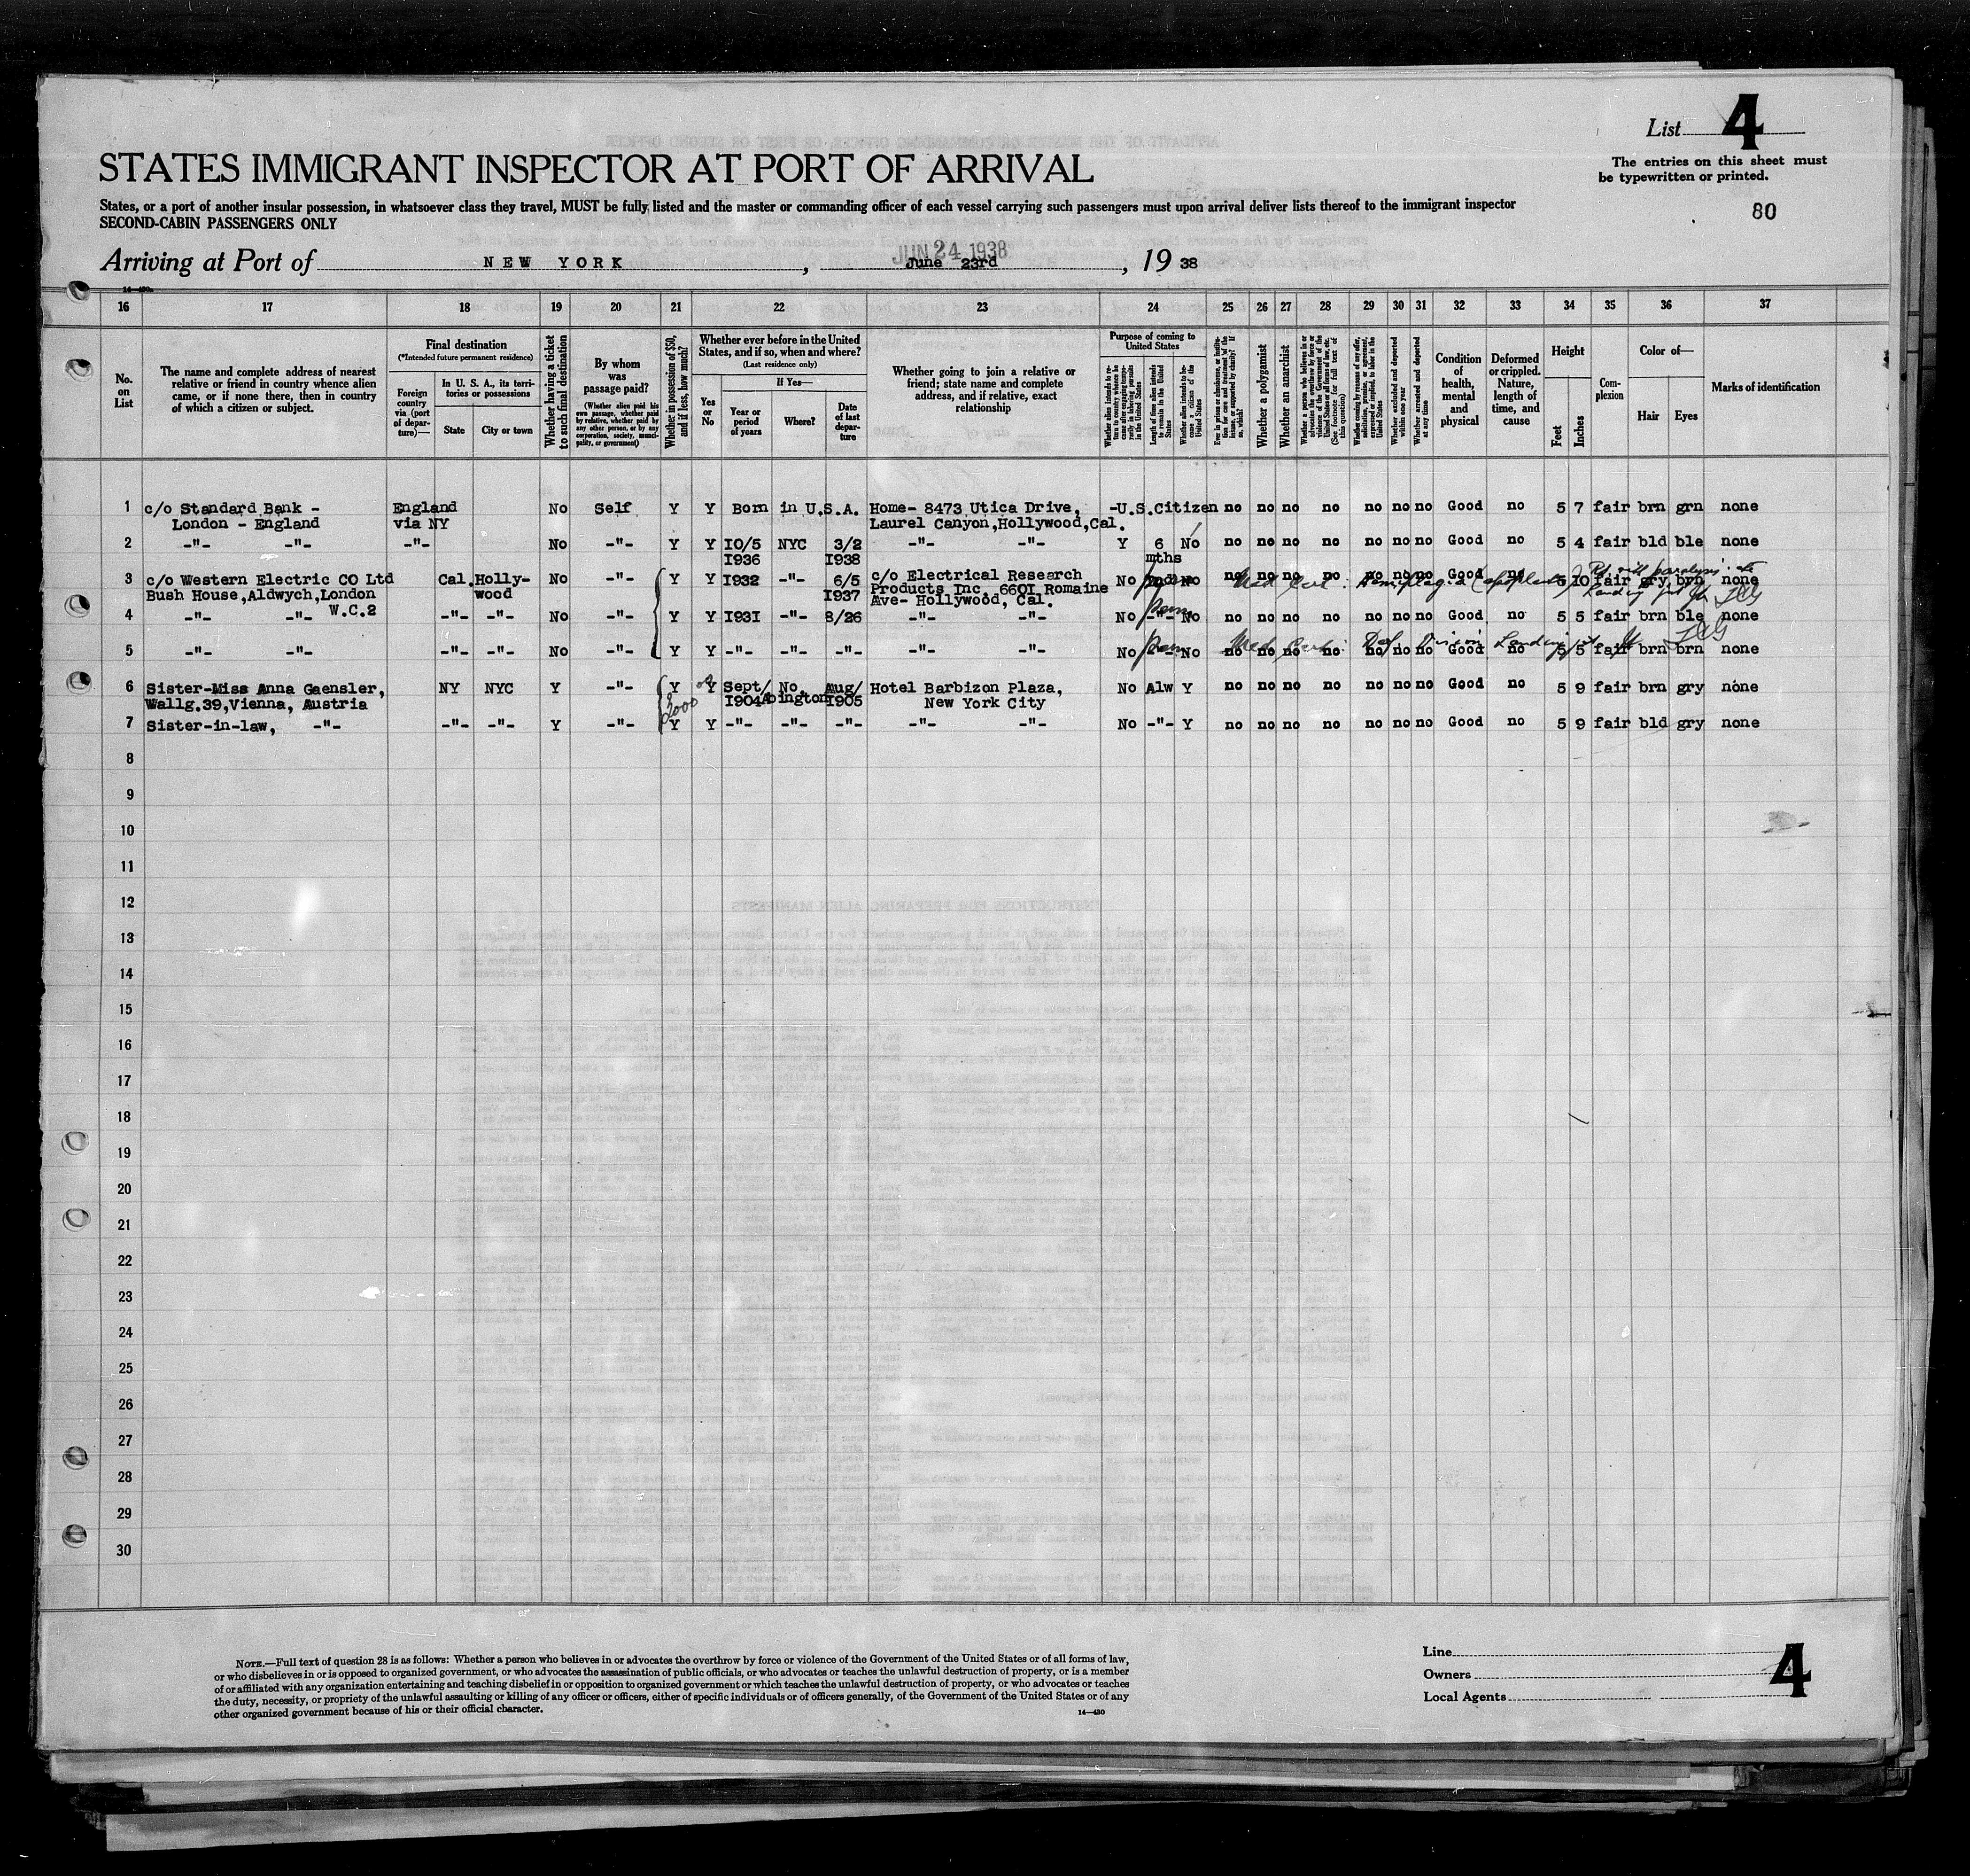 List 4
The entries on this sheet must
be typewritten or printed.
80
STATES IMMIGRANT INSPECTOR AT PORT OF ARRIVAL
States, or a port of another insular possession, in whatsoever class they travel, MUST be fully listed and the master or commanding officer of each vessel carrying such passengers must upon arrival deliver lists thereof to the immigrant inspector
SECOND-CABIN PASSENGERS ONLY
JUN 24 1938
Arriving at Port of NEW YORK, June 23rd, 19 38
16 17 18 19 20 21 22 23 24 25 26 27 28 29 30 31 32 33 34 35 36 37
No. on List
The name and complete address of nearest relative or friend in country whence alien came, or if none there, then in country of which a citizen or subject.
Final destination
(*Intended future permanent residence)
Foreign country via (port of departure)—
In U. S. A., its territories or possessions
State
City or town
Whether having a ticket to such final destination
By whom was passage paid?
(Whether alien paid his own passage, whether paid by relative, whether paid by any other person, or by any corporation, society, municipality, or government)
Whether in possession of $50, and if less, how much?
Whether ever before in the United States, and if so, when and where?
(Last residence only)
Yes or No
If Yes—
Year or period of years
Where?
Date of last departure
Whether going to join a relative or friend; state name and complete address, and if relative, exact relationship
Purpose of coming to United States
Length of time alien intends to remain in the United States
Whether alien intends to become a citizen of the United States
Whether a polygamist
Whether an anarchist
Whether excluded and deported within one year
Whether arrested and deported at any time
Condition of health, mental and physical
Deformed or crippled. Nature, length of time, and cause
Height
Feet
Inches
Complexion
Color of—
Hair
Eyes
Marks of identification
1 c/o Standard Bank - England No Self Y Y Born in U.S.A. Home- 8473 Utica Drive, -U.S.Citizen no no no no no no no Good no 5 7 fair brn grn none
London - England via NY Laurel Canyon,Hollywood,Cal.
2 -"- -"- -"- No -"- Y Y 10/5 NYC 3/2 -"- -"- Y 6 No no no no no no no no Good no 5 4 fair bld ble none
1936 1938 mths
3 c/o Western Electric CO Ltd Cal. Holly- No -"- Y Y 1932 -"- 6/5 c/o Electrical Research No No no no no no no no no Good no 5 10 fair gry brn none
Bush House,Aldwych,London wood 1937 Products Inc, 6601 Romaine
W.C.2 Ave- Hollywood, Cal.
4 -"- -"- -"- -"- No -"- Y Y 1931 -"- 8/26 -"- -"- No -"- No no no no no no no no Good no 5 5 fair brn ble none
5 -"- -"- -"- -"- No -"- Y Y -"- -"- -"- -"- -"- No -"- No no no no no no no no Good no 5 5 fair brn brn none
6 Sister-Miss Anna Gaensler, NY NYC Y -"- Y Y Sept/ No. Aug/ Hotel Barbizon Plaza, No Alw Y no no no no no no no Good no 5 9 fair brn gry none
Wallg.39,Vienna, Austria 1904 Abington 1905 New York City
7 Sister-in-law, -"- -"- -"- Y -"- Y Y -"- -"- -"- -"- -"- No -"- Y no no no no no no no Good no 5 9 fair bld gry none
8
9
10
11
12
13
14
15
16
17
18
19
20
21
22
23
24
25
26
27
28
29
30
NOTE.—Full text of question 28 is as follows: Whether a person who believes in or advocates the overthrow by force or violence of the Government of the United States or of all forms of law,
or who disbelieves in or is opposed to organized government, or who advocates the assassination of public officials, or who advocates or teaches the unlawful destruction of property, or is a member
of or affiliated with any organization entertaining and teaching disbelief in or opposition to organized government or which teaches the unlawful destruction of property, or who advocates or teaches
the duty, necessity, or propriety of the unlawful assaulting or killing of any officer or officers, either of specific individuals or of officers generally, of the Government of the United States or of any
other organized government because of his or their official character.
14—430
Line
Owners
Local Agents
4